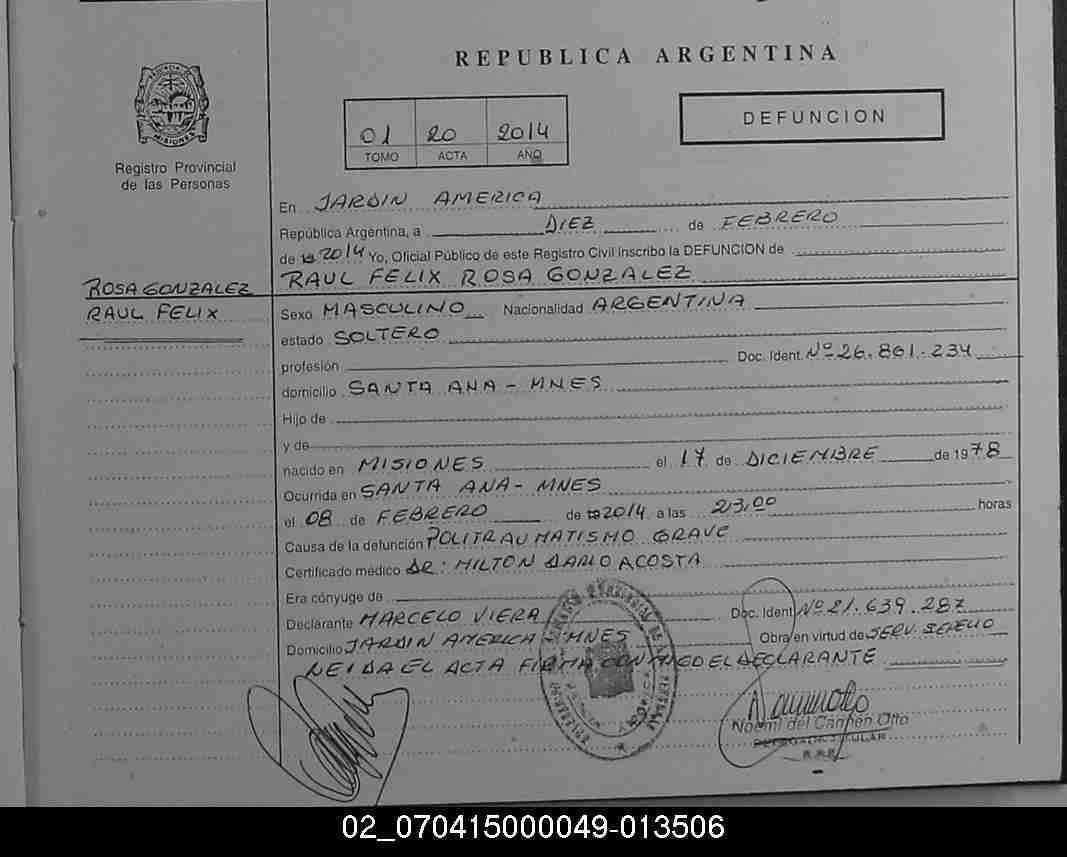 REPUBLICA ARGENTINA
DEFUNCION
01 20 2014
TOMO ACTA AÑO
Registro Provincial
de las Personas
En JARDIN AMERICA
República Argentina, a DIEZ de FEBRERO
de 2014 Yo, Oficial Público de este Registro Civil inscribo la DEFUNCION de
RAUL FELIX ROSA GONZALEZ
ROSA GONZALEZ
RAUL FELIX
Sexo MASCULINO Nacionalidad ARGENTINA
estado SOLTERO
profesión Doc. Ident. Nº 26.861.234
domicilio SANTA ANA - MNES
Hijo de
y de
nacido en MISIONES el 17 de DICIEMBRE de 1978
Ocurrida en SANTA ANA - MNES
el 08 de FEBRERO de 2014 a las 23,00 horas
Causa de la defunción POLITRAUMATISMO GRAVE
Certificado médico DR: MILTON DARIO ACOSTA
Era cónyuge de
Declarante MARCELO VIERA Doc. Ident. Nº 21.639.287
Domicilio JARDIN AMERICA - MNES Obra en virtud de SERV. SEPELIO
LEIDA EL ACTA FIRMA CONMIGO EL DECLARANTE
Noemí del Carmen Otto
02_070415000049-013506